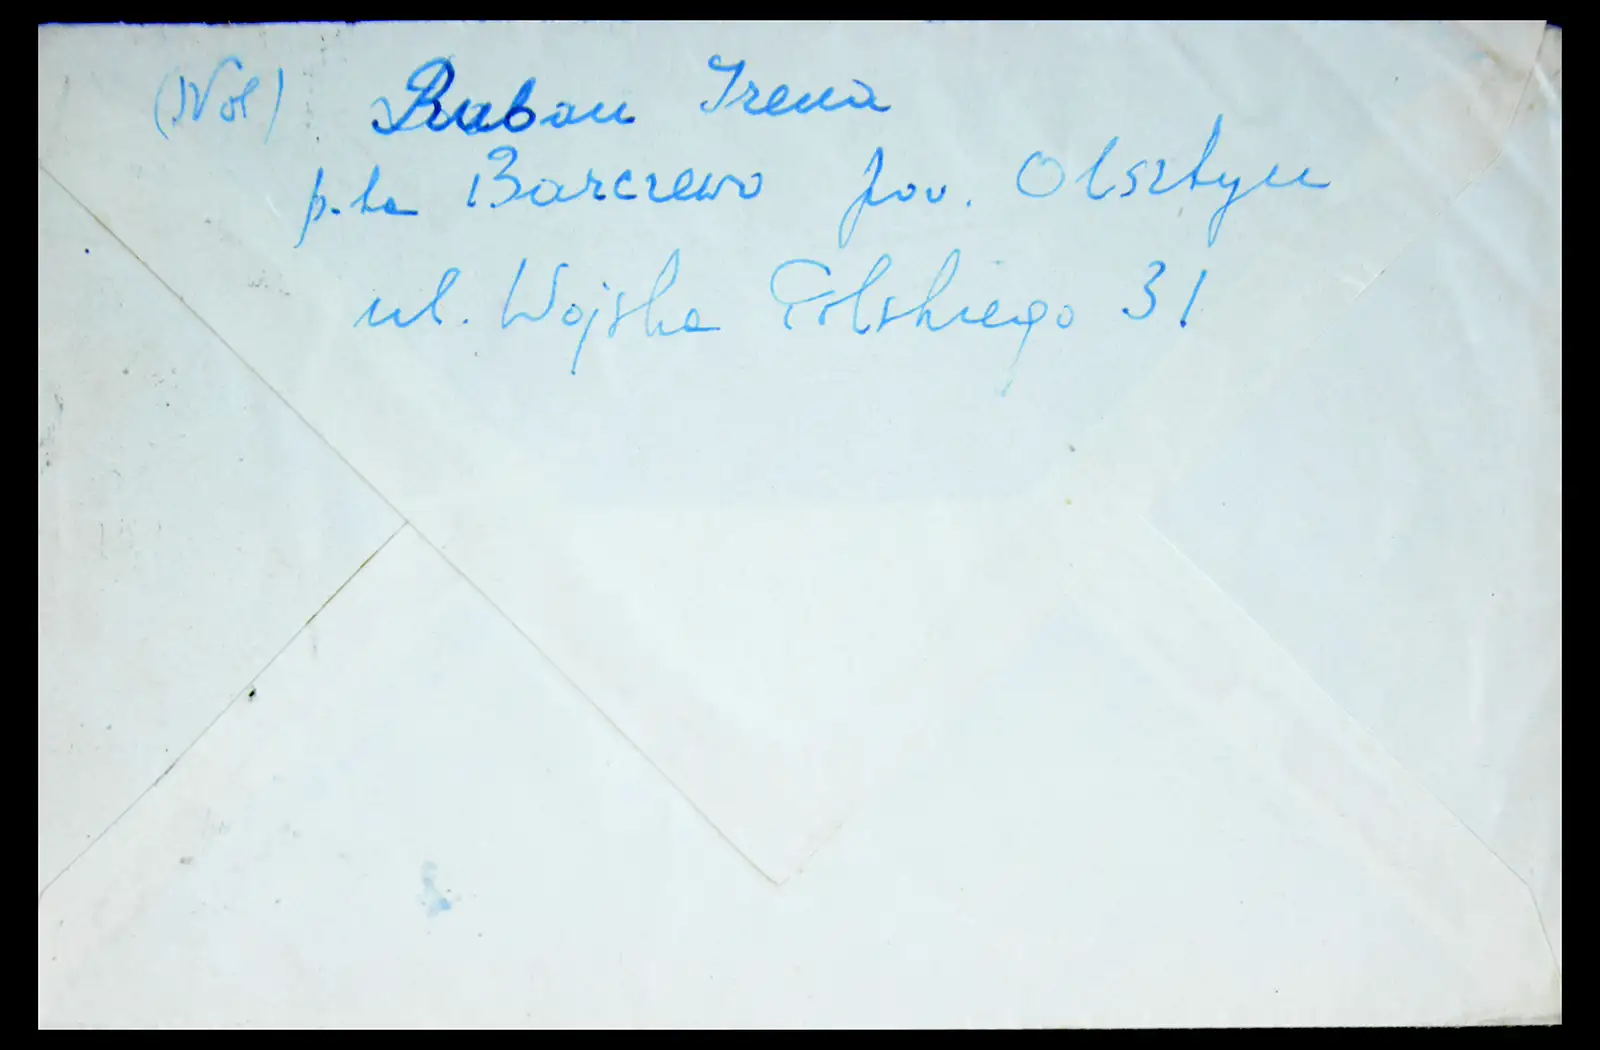 (Nad) Buban Irena
p-ta Barczewo pow. Olsztyn
ul. Wojska Polskiego 31